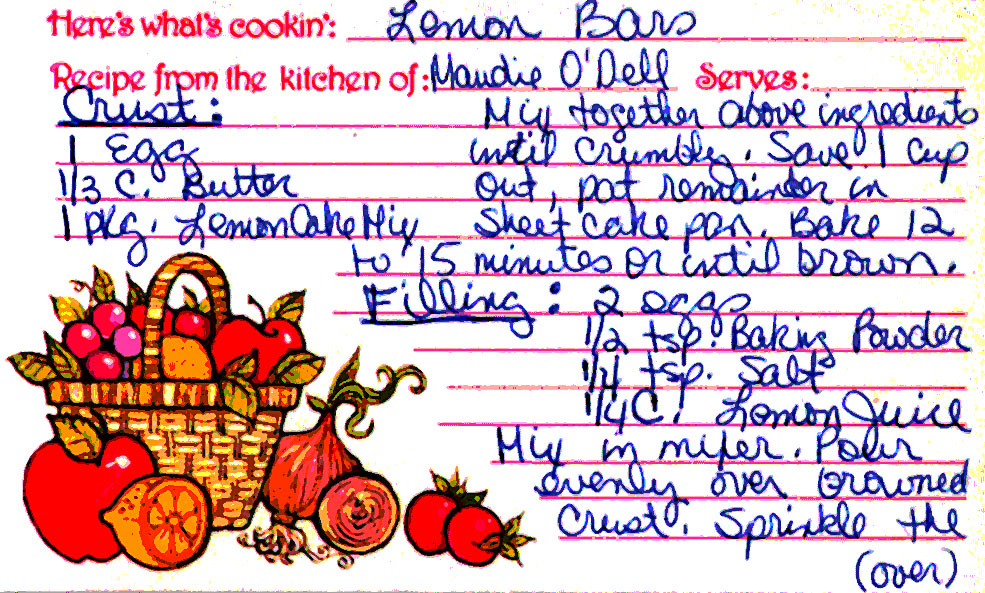 Here's what's cookin': Lemon Bars
Recipe from the kitchen of: Maudie O'Dell Serves:
Crust:
1 Egg
1/3 C. Butter
1 pkg. Lemon Cake Mix
Mix together above ingredients
until crumbly. Save 1 cup
out, pat remainder in
sheet cake pan. Bake 12
to 15 minutes or until brown.
Filling: 2 eggs
1/2 tsp. Baking Powder
1/4 tsp. Salt
1/4 C. Lemon Juice
Mix in mixer. Pour
evenly over browned
crust. Sprinkle the
(over)